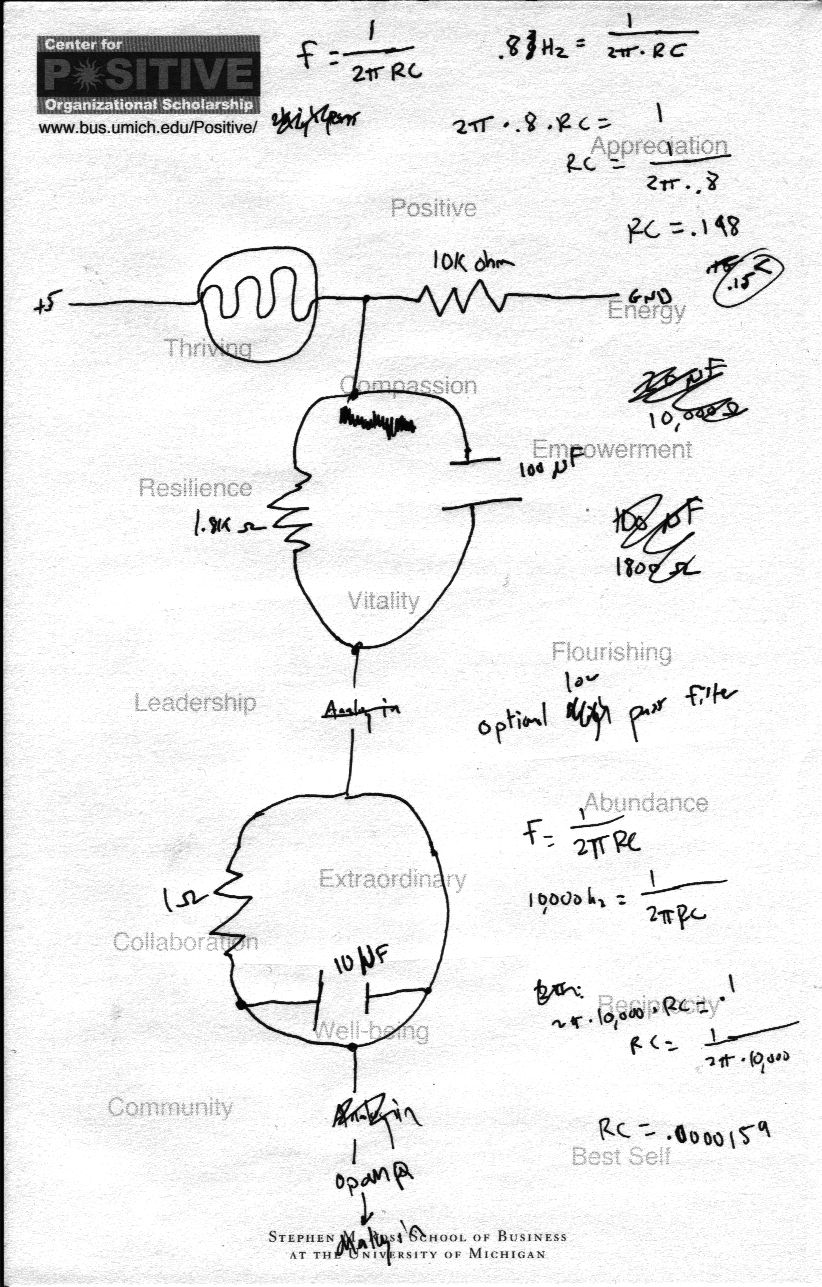 Center for
POSITIVE
Organizational Scholarship
www.bus.umich.edu/Positive/
F = 1 / 2π RC
.8 Hz = 1 / 2π · RC
2π · .8 · RC = 1
Appreciation
RC = 1 / 2π · .8
Positive
RC = .198
10K ohm
.15
+5
GND
Energy
Thriving
Compassion
µF
10,000 Ω
Empowerment
100 µF
Resilience
1.8K Ω
100 µF
1800 Ω
Vitality
Flourishing
low
Leadership
Analog in
optional high pass filter
Abundance
F = 1 / 2π RC
Extraordinary
1Ω
10,000 hz = 1 / 2π RC
Collaboration
10 µF
Reciprocity
2π · 10,000 · RC = .1
Well-being
RC = 1 / 2π · 10,000
Community
Analog in
RC = .0000159
Best Self
opamp
Analog in
STEPHEN M. ROSS SCHOOL OF BUSINESS
AT THE UNIVERSITY OF MICHIGAN